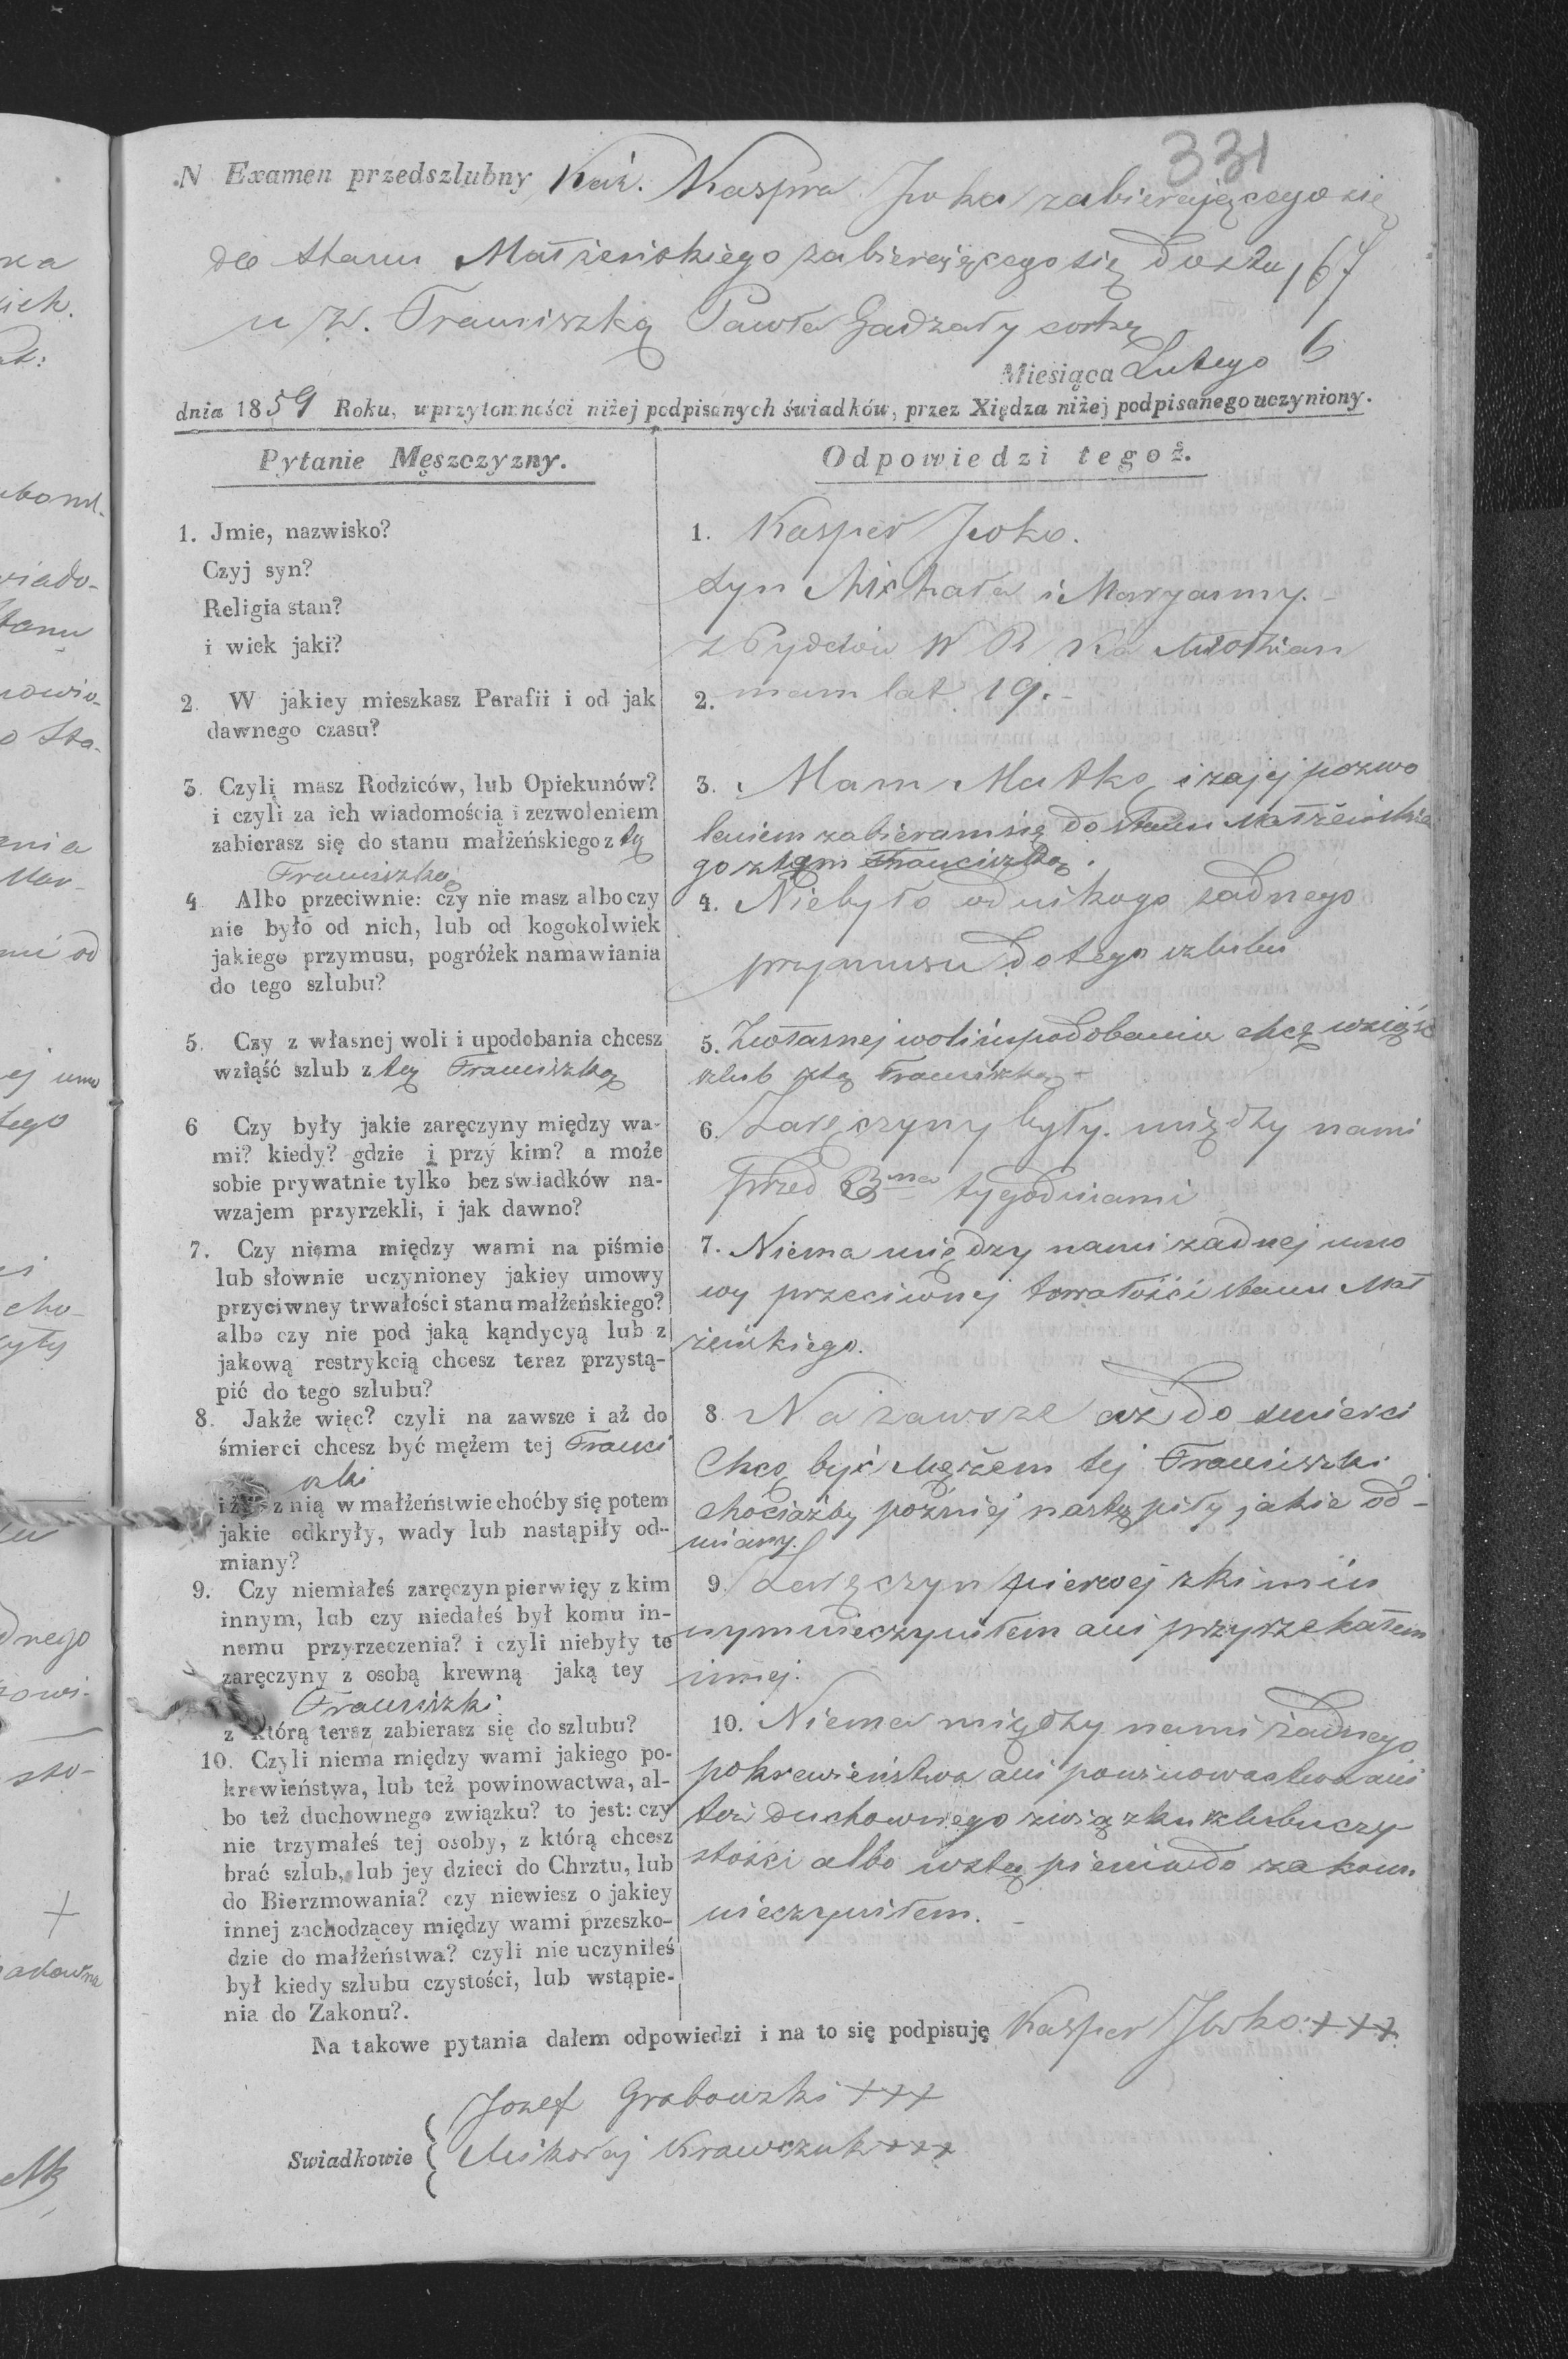 331
N Examen przedszlubny Kaw. Kaspra Iwka zabierającego się
do stanu Małżeńskiego zabierającego się do stu 167
n z. Franciszką Pawła Gadzały corką
Miesiąca Lutego 6
dnia 1859 Roku, w przytomności niżej podpisanych świadków, przez Xiędza niżej podpisanego uczyniony.
Pytanie Męszczyzny.
1. Jmie, nazwisko?
Czyj syn?
Religia stan?
i wiek jaki?
2. W jakiey mieszkasz Parafii i od jak
dawnego czasu?
3. Czylj masz Rodziców, lub Opiekunów?
i czyli za ich wiadomością i zezwoleniem
zabierasz się do stanu małżeńskiego z tą
Franciszką
4 Albo przeciwnie: czy nie masz albo czy
nie było od nich, lub od kogokolwiek
jakiego przymusu, pogróżek namawiania
do tego szlubu?
5. Czy z własnej woli i upodobania chcesz
wziąść szlub z tą Franciszką
6 Czy były jakie zaręczyny między wa-
mi? kiedy? gdzie i przy kim? a może
sobie prywatnie tylko bez świadków na-
wzajem przyrzekli, i jak dawno?
7. Czy niema między wami na piśmie
lub słownie uczynioney jakiey umowy
przyciwney trwałości stanu małżeńskiego?
albo czy nie pod jaką kąndycyą lub z
jakową restrykcią chcesz teraz przystą-
pić do tego szlubu?
8. Jakże więc? czyli na zawsze i aż do
śmierci chcesz być mężem tej Franci
szki
z nią w małżeństwie choćby się potem
jakie odkryły, wady lub nastąpiły od-
miany?
9. Czy niemiałeś zaręczyn pierwięy z kim
innym, lub czy niedałeś był komu in-
nemu przyrzeczenia? i czyli niebyły te
zaręczyny z osobą krewną jaką tey
Franciszki
z którą teraz zabierasz się do szlubu?
10. Czyli niema między wami jakiego po-
krewieństwa, lub też powinowactwa, al-
bo też duchownego związku? to jest: czy
nie trzymałeś tej osoby, z którą chcesz
brać szlub, lub jey dzieci do Chrztu, lub
do Bierzmowania? czy niewiesz o jakiey
innej zachodzącey między wami przeszko-
dzie do małżeństwa? czyli nie uczyniłeś
był kiedy szlubu czystości, lub wstąpie-
nia do Zakonu?.
Odpowiedzi tegoż.
1. Kasper Iwko.
syn Michała i Maryanny.
z W R Ka Młodzian
2. mam lat 19.-
3. Mam Matkę i za jej pozwo
leniem zabieram się do stanu Małżeńskie
go z tąm Franciszką.
4. Niebyło od nikogo żadnego
przymusu do tego szlubu
5. Zwłasnej woli i upodobania chcę wziąść
szlub z tą Franciszką -
6. Zaręczyny były między nami
przed 3ma tygodniami
7. Niema między nami żadnej umo
wy przeciwnej towałości stanu Mał
żeńskiego.
8. Na zawsze aż do śmierci
Chcę być Mężem tej Franciszki
chociażby poźniej nastąpiły jakie od-
miany.
9. Zaręczyn pierwej zkim in
nym nieczyniłem ani przyrzekałem
innej.
10. Niema między nami żadnego
pokrewieństwa ani powinowactwa ani
też duchownego związku szlubu czy
stości albo wstąpienia do zakonu
nieczyniłem. -
Na takowe pytania dałem odpowiedzi i na to się podpisuję Kasper Iwko +++
Swiadkowie
Jozef Grabowski +++
Mikołaj Krawczuk +++